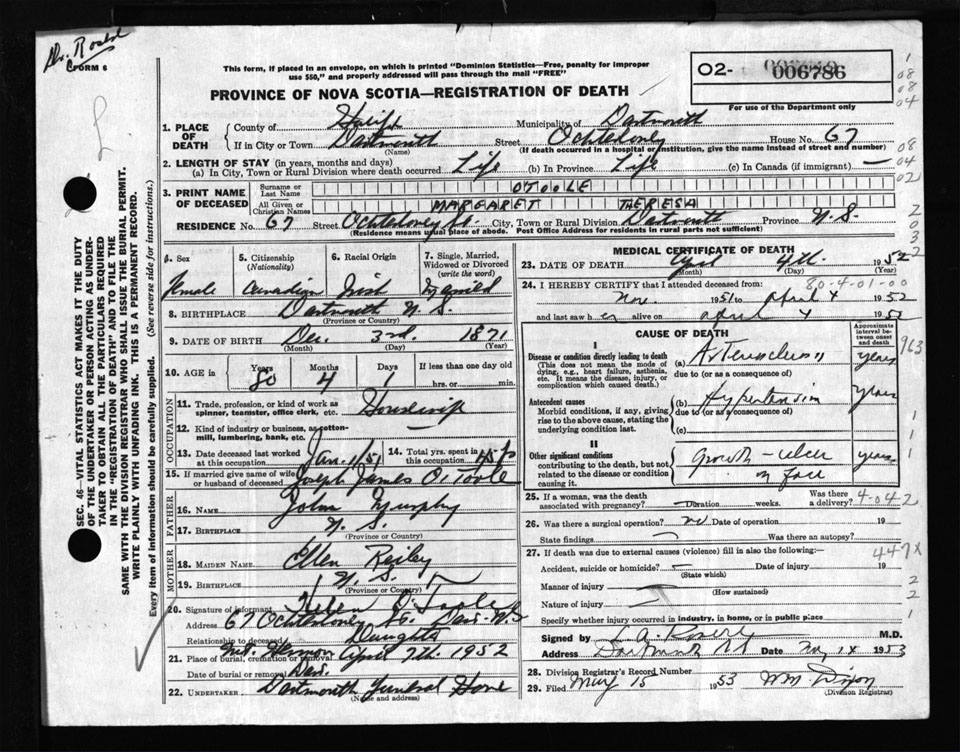 Dr.
FORM 6
This form, if placed in an envelope, on which is printed "Dominion Statistics—Free, penalty for improper
use $50," and properly addressed will pass through the mail "FREE"
02- 006786
For use of the Department only
PROVINCE OF NOVA SCOTIA—REGISTRATION OF DEATH
1. PLACE OF DEATH
County of Halifx Municipality of Dartmouth
If in City or Town Dartmouth Street Ochterloney House No. 67
(Name) (If death occurred in a hospital or institution, give the name instead of street and number)
2. LENGTH OF STAY (in years, months and days)
(a) In City, Town or Rural Division where death occurred Life (b) In Province Life (c) In Canada (if immigrant) —
3. PRINT NAME OF DECEASED
Surname or Last Name OTOOLE
All Given or Christian Names MARGARET THERESA
RESIDENCE No. 67 Street Ochterloney St. City, Town or Rural Division Dartmouth Province N.S.
(Residence means usual place of abode. Post Office Address for residents in rural parts not sufficient)
4. Sex
Female
5. Citizenship
(Nationality)
Canadian
6. Racial Origin
Irish
7. Single, Married, Widowed or Divorced
(write the word)
Married
8. BIRTHPLACE Dartmouth N.S.
(Province or Country)
9. DATE OF BIRTH Dec. 3rd. 1871
(Month) (Day) (Year)
10. AGE in
Years 80 Months 4 Days 1
If less than one day old
hrs. or min.
OCCUPATION
11. Trade, profession, or kind of work as spinner, teamster, office clerk, etc. Housewife
12. Kind of industry or business, as cotton-mill, lumbering, bank, etc.
13. Date deceased last worked at this occupation Jan. 1/51
14. Total yrs. spent in this occupation
15. If married give name of wife or husband of deceased Joseph James O'Toole
FATHER
16. NAME John Murphy
17. BIRTHPLACE N.S.
(Province or Country)
MOTHER
18. MAIDEN NAME Ellen
19. BIRTHPLACE N.S.
(Province or Country)
20. Signature of informant Helen O'Toole
Address 67 Ochterloney St. Dart. N.S.
Relationship to deceased Daughter
21. Place of burial, cremation or removal Mt. Hermon
Date of burial or removal April 7th. 1952
Dart.
22. UNDERTAKER Dartmouth Funeral Home
(Name and address)
MEDICAL CERTIFICATE OF DEATH
23. DATE OF DEATH April 4th. 1952
(Month) (Day) (Year)
24. I HEREBY CERTIFY that I attended deceased from 80-4-01-00
Nov. 1951 to April 4 1952
and last saw her alive on April 4 1952
CAUSE OF DEATH
Approximate interval between onset and death
I
Disease or condition directly leading to death
(This does not mean the mode of dying, e.g., heart failure, asthenia, etc. It means the disease, injury, or complication which caused death.)
(a) years
due to (or as a consequence of)
Antecedent causes
Morbid conditions, if any, giving rise to the above cause, stating the underlying condition last.
(b) Hypertension years
due to (or as a consequence of)
(c)
II
Other significant conditions
contributing to the death, but not related to the disease or condition causing it.
growth - ulcer years
on face
25. If a woman, was the death associated with pregnancy? — Duration weeks. Was there a delivery? 4-042
26. Was there a surgical operation? no Date of operation 19
State findings Was there an autopsy?
27. If death was due to external causes (violence) fill in also the following:— 447x
Accident, suicide or homicide? — Date 19
(State which)
Manner of injury
(How sustained)
Nature of injury
Specify whether injury occurred in industry, in home, or in public place
Signed by M.D.
Address Dartmouth NS Date 1953
28. Division Registrar's Record Number
29. Filed May 15 1953 Wm. Dixon
(Division Registrar)
SEC. 46—VITAL STATISTICS ACT MAKES IT THE DUTY
OF THE UNDERTAKER OR PERSON ACTING AS UNDER-
TAKER TO OBTAIN ALL THE PARTICULARS REQUIRED
IN THE "REGISTRATION OF DEATH" AND TO FILE THE
SAME WITH THE DIVISION REGISTRAR WHO SHALL ISSUE THE BURIAL PERMIT.
WRITE PLAINLY WITH UNFADING INK. THIS IS A PERMANENT RECORD.
Every item of information should be carefully supplied. (See reverse side for instructions.)
1
08
08
04
08
04
02
2
0
3
2
963
1
1
1
2
2
1